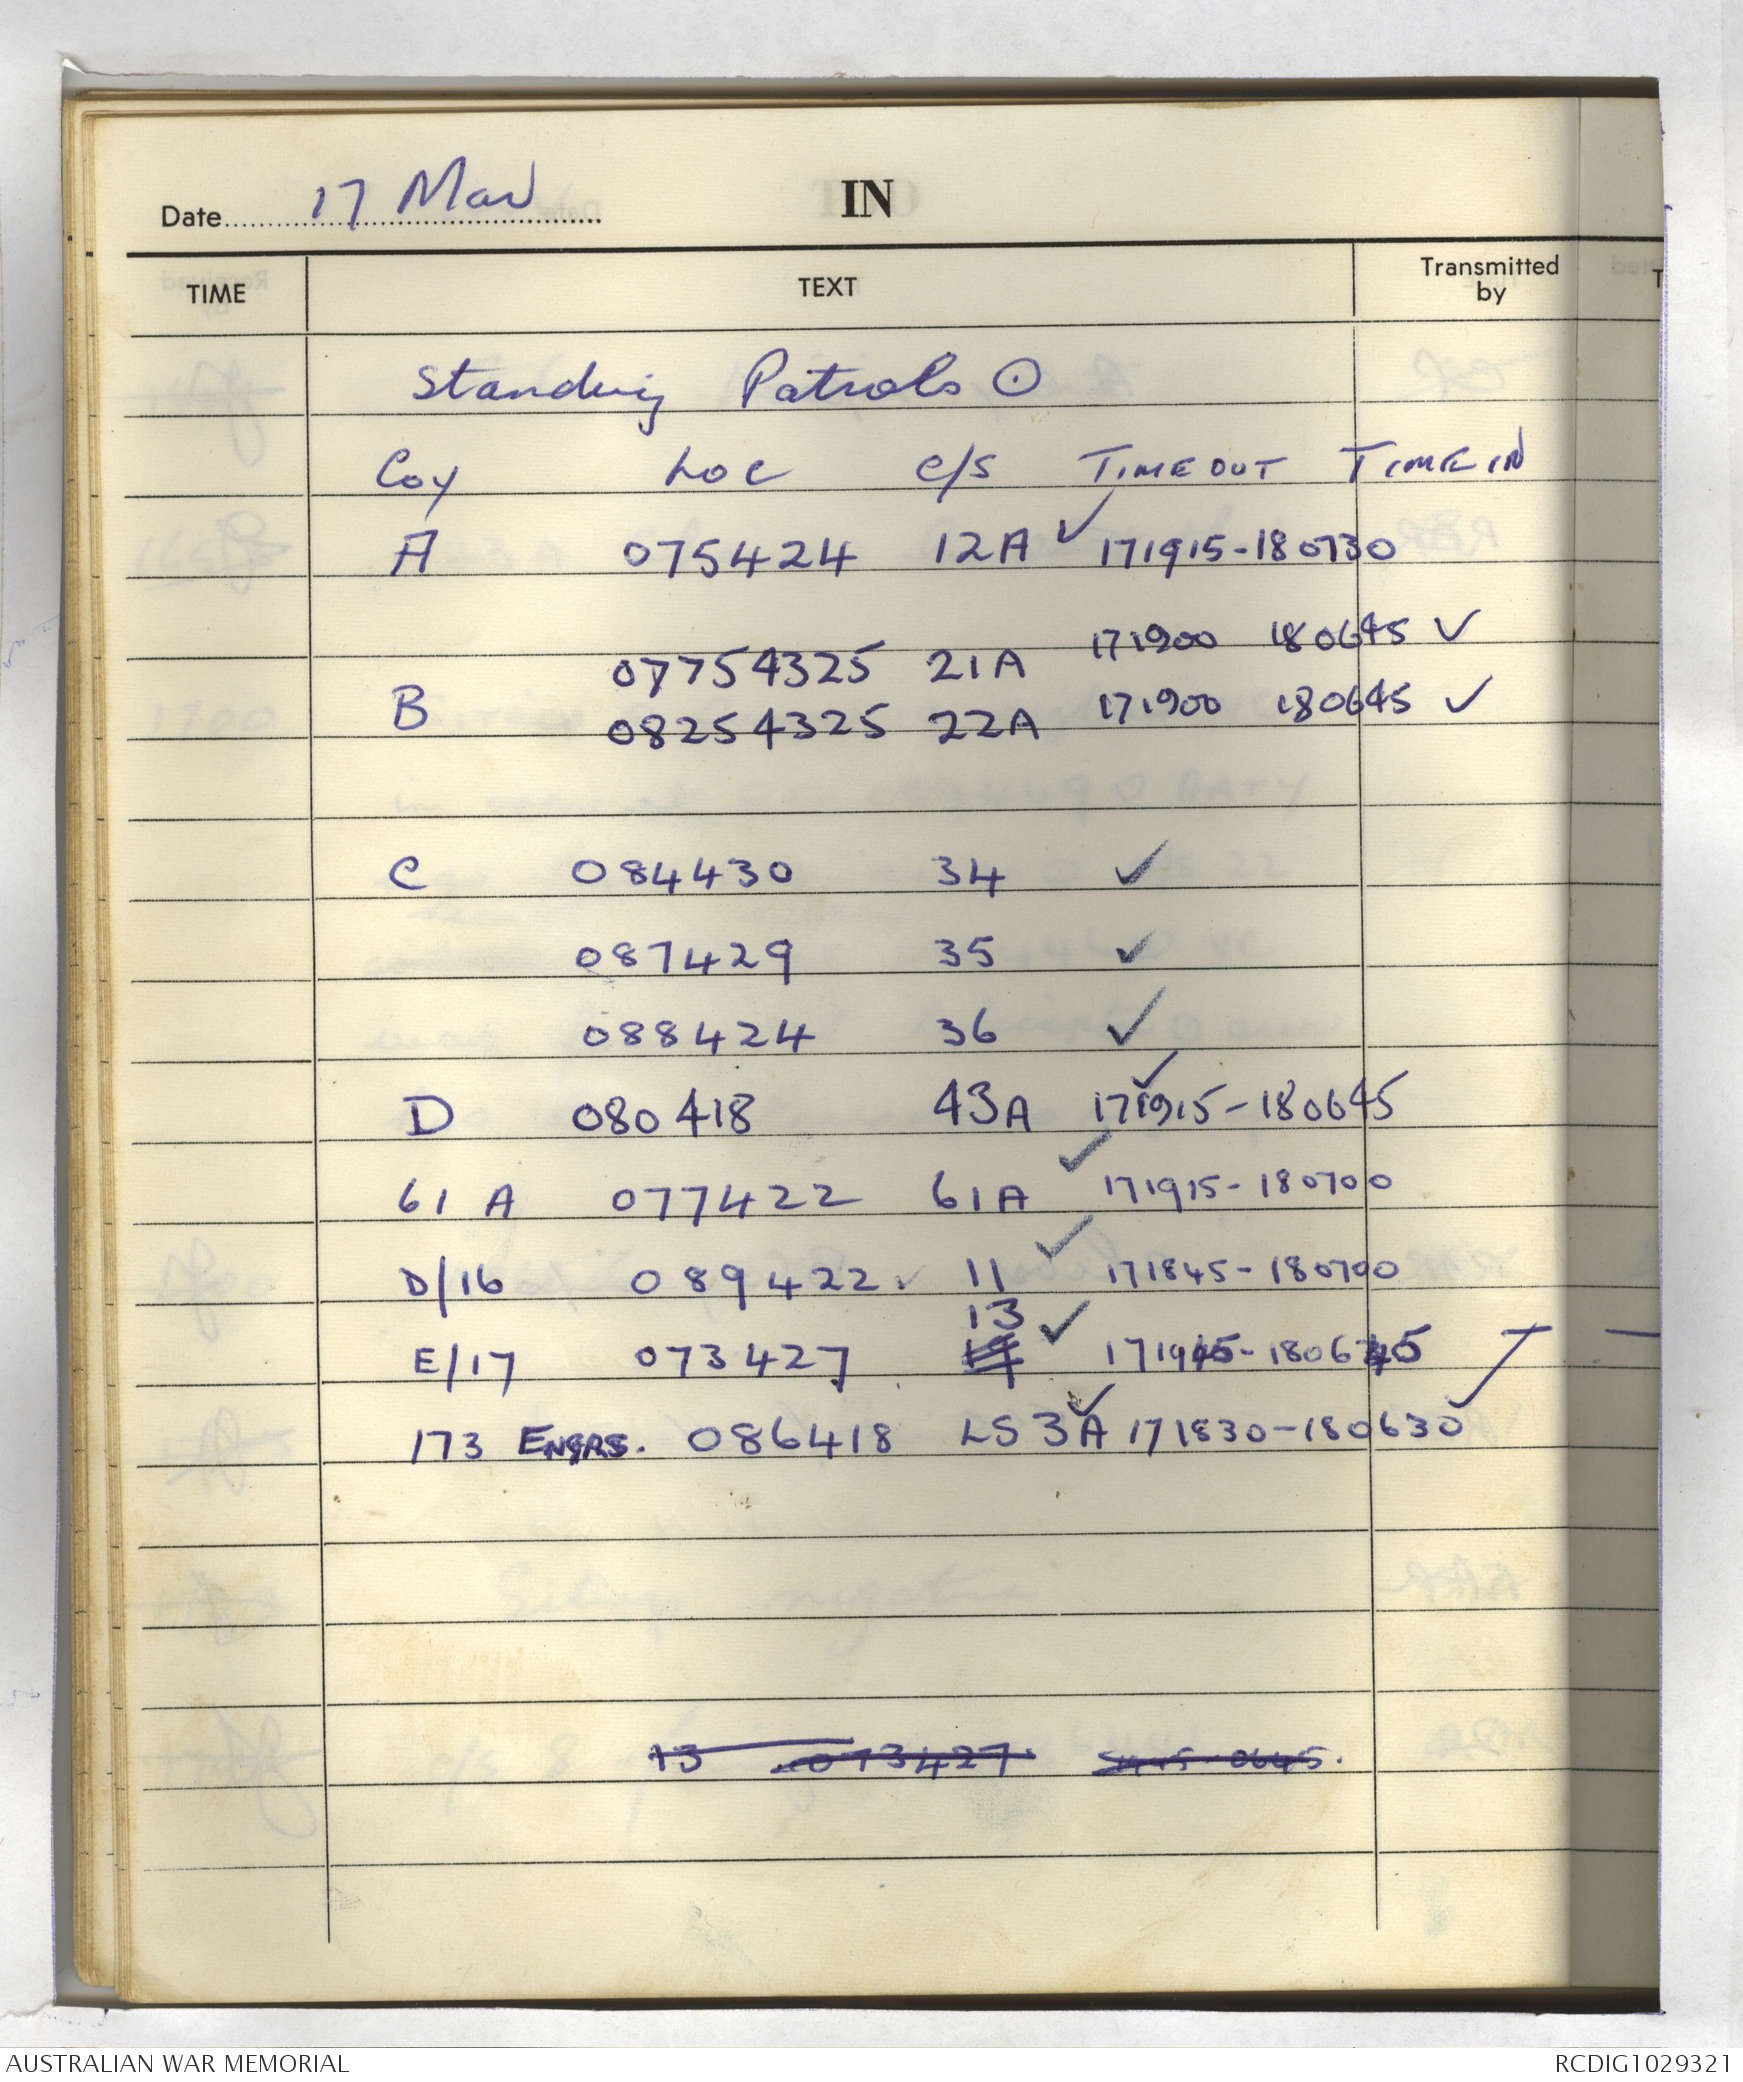 Date 17 Mar
IN
TIME TEXT Transmitted by
Standing Patrols ⊙
Coy Loc C/S TIME OUT TIME IN
A 075424 12A ✓ 171915-180730
07754325 21A 171900 180645 ✓
B 08254325 22A 171900 180645 ✓
C 084430 34 ✓
087429 35 ✓
088424 36 ✓
D 080418 43A ✓ 171915-180645
61 A 077422 61A ✓ 171915-180700
D/16 089422 11 ✓ 171845-180700
13 ✓
E/17 073427
173 ENGRS. 086418 LS 3A ✓ 171830-180630
13 073427 0645.
AUSTRALIAN WAR MEMORIAL RCDIG1029321